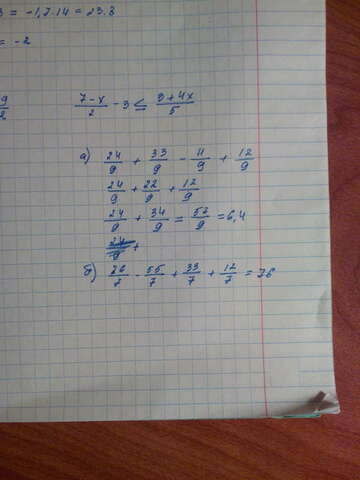 3 = -1,2.14 = 23.8
= -2
9/2
(7-x)/2 - 3 ≤ (3+4x)/5
a) 24/9 + 33/9 - 11/9 + 12/9
24/9 + 22/9 + 12/9
24/9 + 34/9 = 52/9 = 6,4
24/9 +
б) 26/7 - 55/7 + 33/7 + 12/7 = 76